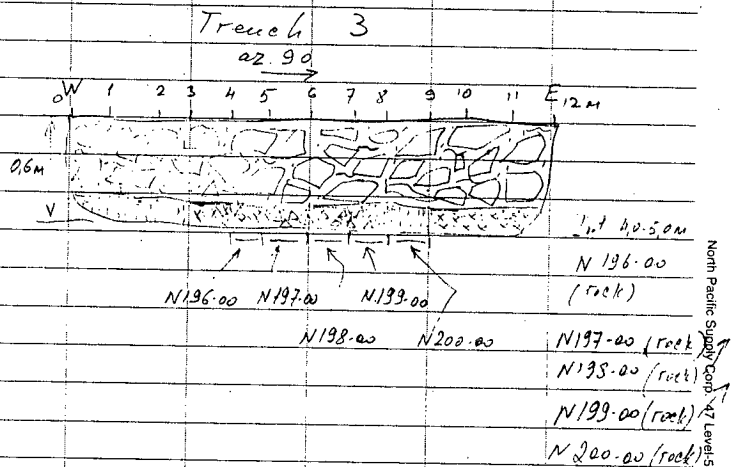 Trench 3
az. 90
W E
0 1 2 3 4 5 6 7 8 9 10 11 12 м
0,6м
V
4,0-5,0м
N 196-00
(rock)
N196-00 N197-00 N199-00
N198-00 N200-00
N197-00 (rock)
N198-00 (rock)
N199-00 (rock)
N 200-00 (rock)
North Pacific Supply Corp. 47 Level-5